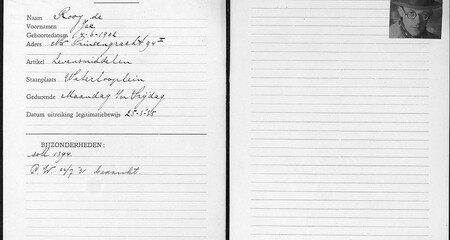 Naam Rooy de
Voornamen
Geboortedatum 4-6-1906
Adres Nwe Prinsengracht 94 II
Artikel Levensmiddelen
Staanplaats Waterlooplein
Gedurende Maandag t/m Vrijdag
Datum uitreiking legitimatiebewijs 25-1-35
BIJZONDERHEDEN:
soll 1394.
P.W.